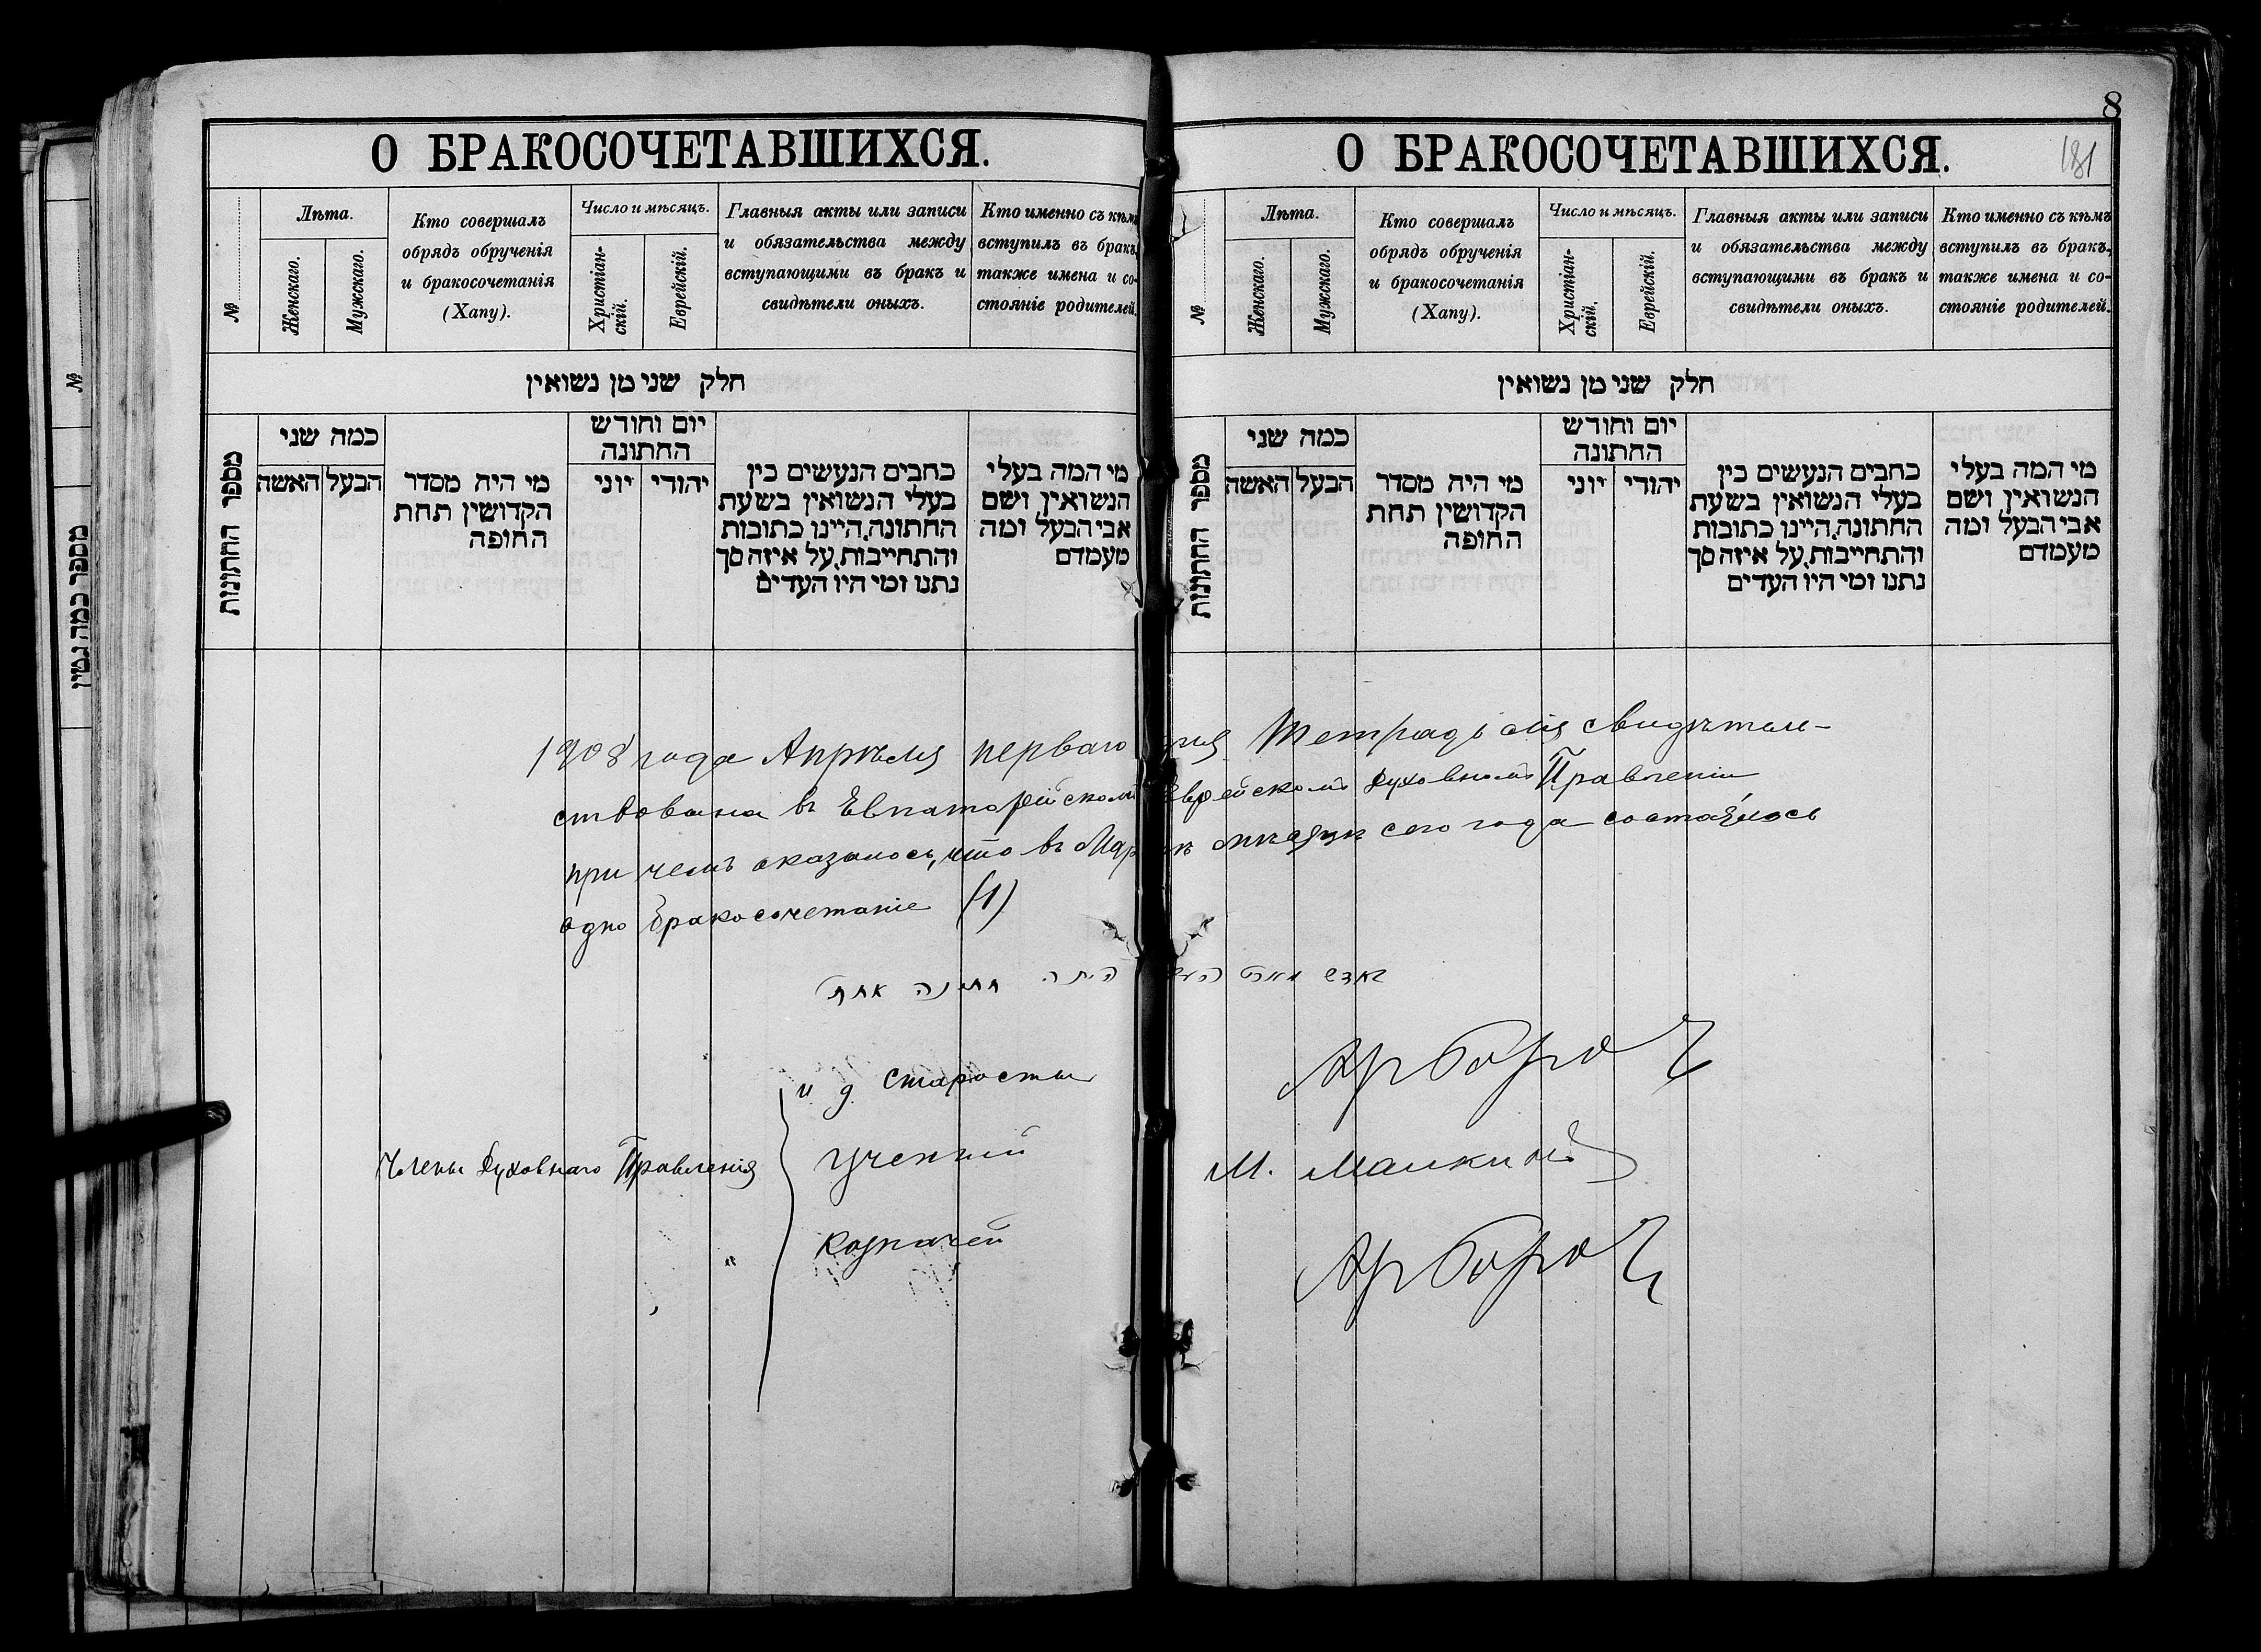 О БРАКОСОЧЕТАВШИХСЯ.
№
Лѣта.
Женскаго.
Мужскаго.
Кто совершалъ
обрядъ обрученія
и бракосочетанія
(Хапу).
Число и мѣсяцъ.
Христіан-
скій.
Еврейскій.
Главныя акты или записи
и обязательства между
вступающими въ бракъ и
свидѣтели оныхъ.
Кто именно съ кѣмъ
вступилъ въ бракъ,
также имена и со-
стояніе родителей.
חלק שני מן נשואין
מספר החתונות
כמה שני
הבעל האשה
מי היה מסדר
הקדושין תחת
החופה
יום וחודש
החתונה
יהודי יוני
כתבים הנעשים בין
בעלי הנשואין בשעת
החתונה, היינו כתובות
והתחייבות, על איזה סך
נתנו ומי היו העדים
מי המה בעלי
הנשואין ושם
אבי הבעל ומה
מעמדם
8
181
О БРАКОСОЧЕТАВШИХСЯ.
№
Лѣта.
Женскаго.
Мужскаго.
Кто совершалъ
обрядъ обрученія
и бракосочетанія
(Хапу).
Число и мѣсяцъ.
Христіан-
скій.
Еврейскій.
Главныя акты или записи
и обязательства между
вступающими въ бракъ и
свидѣтели оныхъ.
Кто именно съ кѣмъ
вступилъ въ бракъ,
также имена и со-
стояніе родителей.
חלק שני מן נשואין
מספר החתונות
כמה שני
הבעל האשה
מי היה מסדר
הקדושין תחת
החופה
יום וחודש
החתונה
יהודי יוני
כתבים הנעשים בין
בעלי הנשואין בשעת
החתונה, היינו כתובות
והתחייבות, על איזה סך
נתנו ומי היו העדים
מי המה בעלי
הנשואין ושם
אבי הבעל ומה
מעמדם
1908 года Апрѣля перваго дня Тетрадь сія свидѣтель-
ствована въ Евпаторійскомъ Еврейскомъ Духовномъ Правленіи
при чемъ оказалось, что въ Мартѣ мѣсяцѣ сего года состоялось
одно бракосочетаніе (1)
היתה חתונה אחת
и д старосты
Члены Духовнаго Правленія
Ученый
М.
Казначей
№
מספר כמה גטין